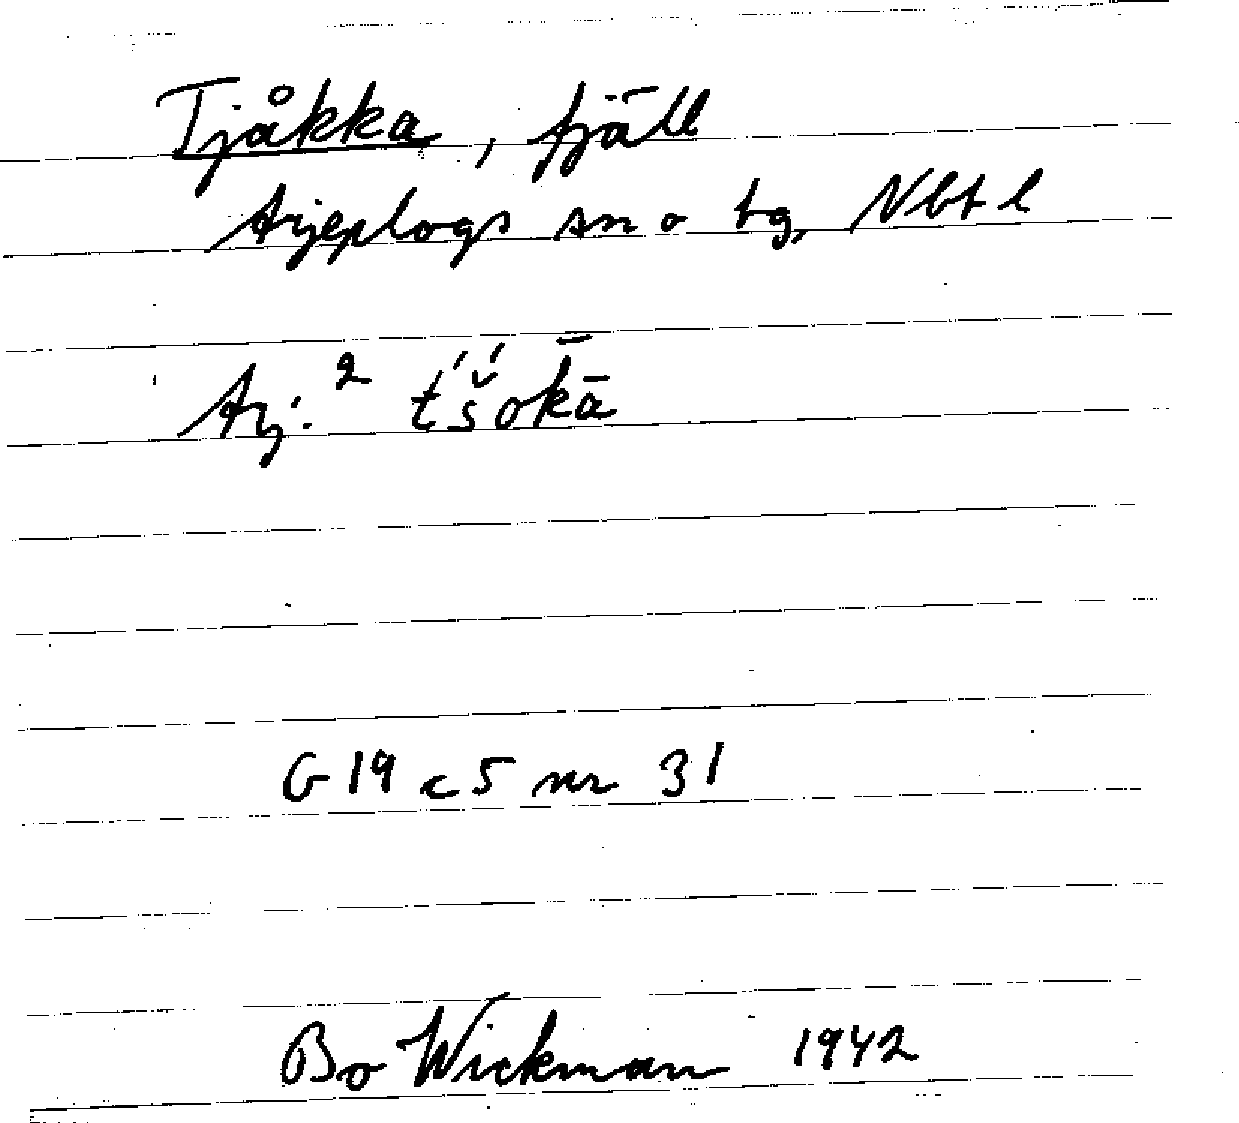 Tjåkka, fjäll
Arjeplogs sn o tg, Nbt l
Arj.² t́š́ok̄ā
G 19 c 5 nr 31
Bo Wickman 1942